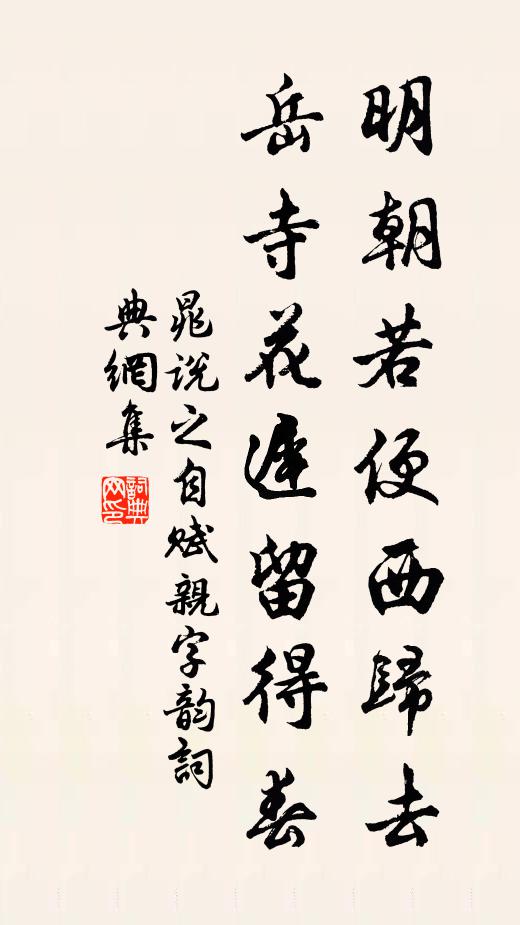 明朝若便西歸去
岳寺花遲留得春
晁說之自賦親字韵詞
典網集
詞典網印